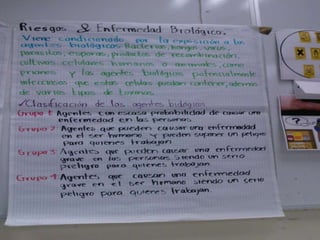 Riesgos & Enfermedad Biológica.
Viene condicionado por la exposición a los
agentes biológicos: Bacterias, hongos, virus,
parasitos, esporas, productos de recombinación,
cultivos celulares humanos o animales, como
priones y los agentes biológicos potencialmente
infecciosos que estas células puedan contener, además
de varios tipos de toxinas.
✓Clasificación de los agentes biológicos
Grupo 1: Agentes con escasa probabilidad de causar una
enfermedad en las personas.
Grupo 2: Agentes que pueden causar una enfermedad
en el ser humano y pueden suponer un peligro
para quienes trabajan
Grupo 3: Agentes que pueden causar una enfermedad
grave en las personas siendo un serio
peligro para quienes trabajan.
Grupo 4: Agentes que causan una enfermedad
grave en el ser humano siendo un serio
peligro para quienes trabajan.